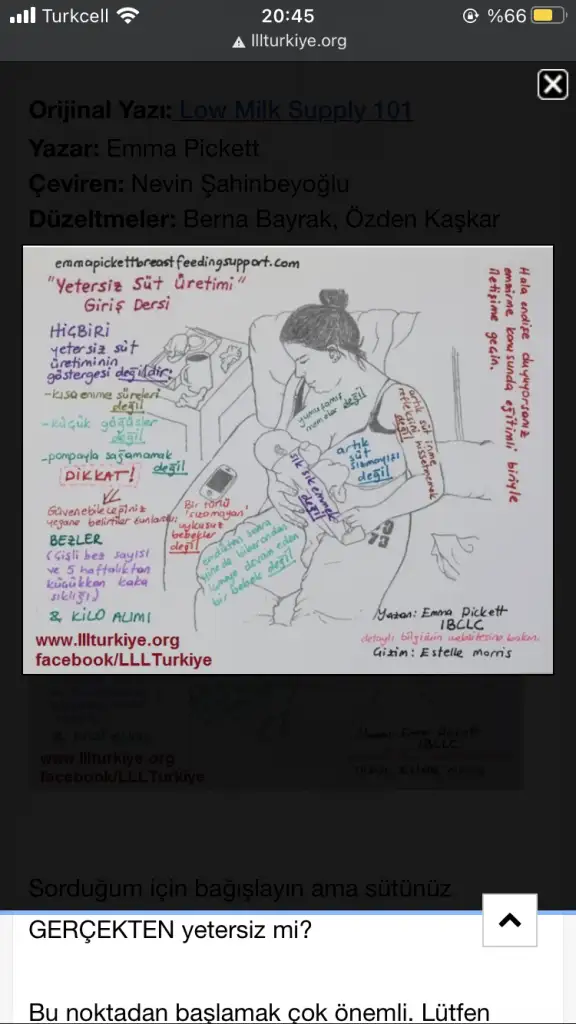 Turkcell
20:45
%66
lllturkiye.org
Orijinal Yazı: Low Milk Supply 101
Yazar: Emma Pickett
Çeviren: Nevin Şahinbeyoğlu
Düzeltmeler: Berna Bayrak, Özden Kaşkar
emmapickettbreastfeedingsupport.com
"Yetersiz Süt Üretimi"
Giriş Dersi
HİÇBİRİ
yetersiz süt
üretiminin
göstergesi değildir:
-kısa emme süreleri
değil
-küçük göğüsler
değil
-pompayla sağamamak
değil
DİKKAT!
Güvenebileceğiniz
yegane belirtiler bunlardır:
BEZLER
(Çişli bez sayısı
ve 5 haftalıktan
küçükken kaka
sıklığı)
& KİLO ALIMI
www.lllturkiye.org
facebook/LLLTurkiye
Bir türlü
uykusuz
bebekler
değil
emdikten sonra
yine de biberondan
içmeye devam eden
bir bebek değil
yumuşamış
memeler değil
sık sık emmek
değil
artık
süt
sızmayışı
değil
artık süt inme
refleksini
hissetmemek
değil
Hala endişe duyuyorsanız
emzirme konusunda eğitimli biriyle
iletişime geçin.
73
Yazan: Emma Pickett
IBCLC
detaylı bilgi için websitesine bakın.
Çizim: Estelle Morris
www.lllturkiye.org
facebook/LLLTurkiye
Sorduğum için bağışlayın ama sütünüz
GERÇEKTEN yetersiz mi?
Bu noktadan başlamak çok önemli. Lütfen